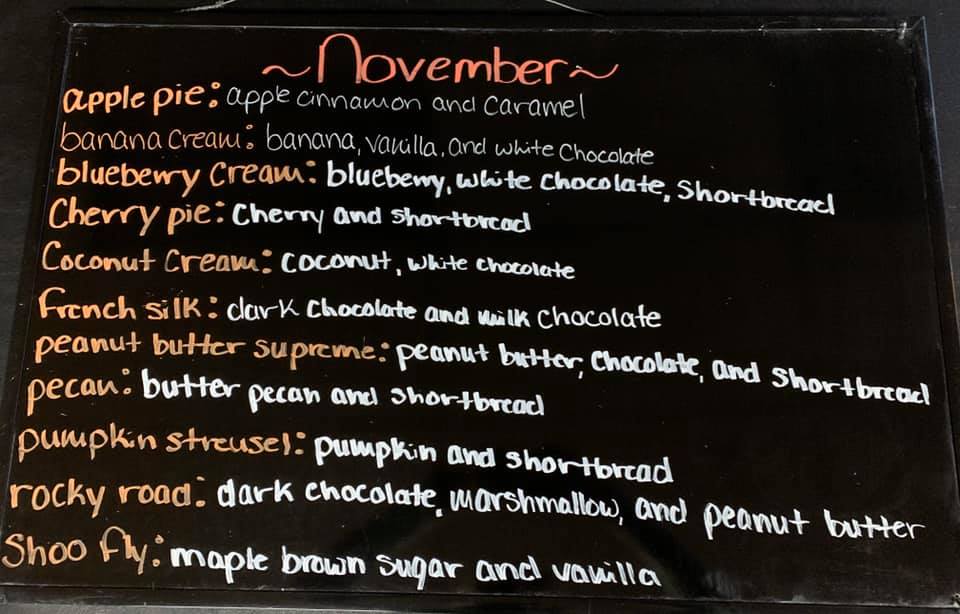 ~November~
apple pie: apple cinnamon and caramel
banana cream: banana, vanilla, and white chocolate
blueberry cream: blueberry, white chocolate, shortbread
Cherry pie: Cherry and shortbread
Coconut Cream: coconut, white chocolate
french silk: dark chocolate and milk chocolate
peanut butter supreme: peanut butter, chocolate, and shortbread
pecan: butter pecan and shortbread
pumpkin streusel: pumpkin and shortbread
rocky road: dark chocolate, marshmallow, and peanut butter
Shoo fly: maple brown sugar and vanilla